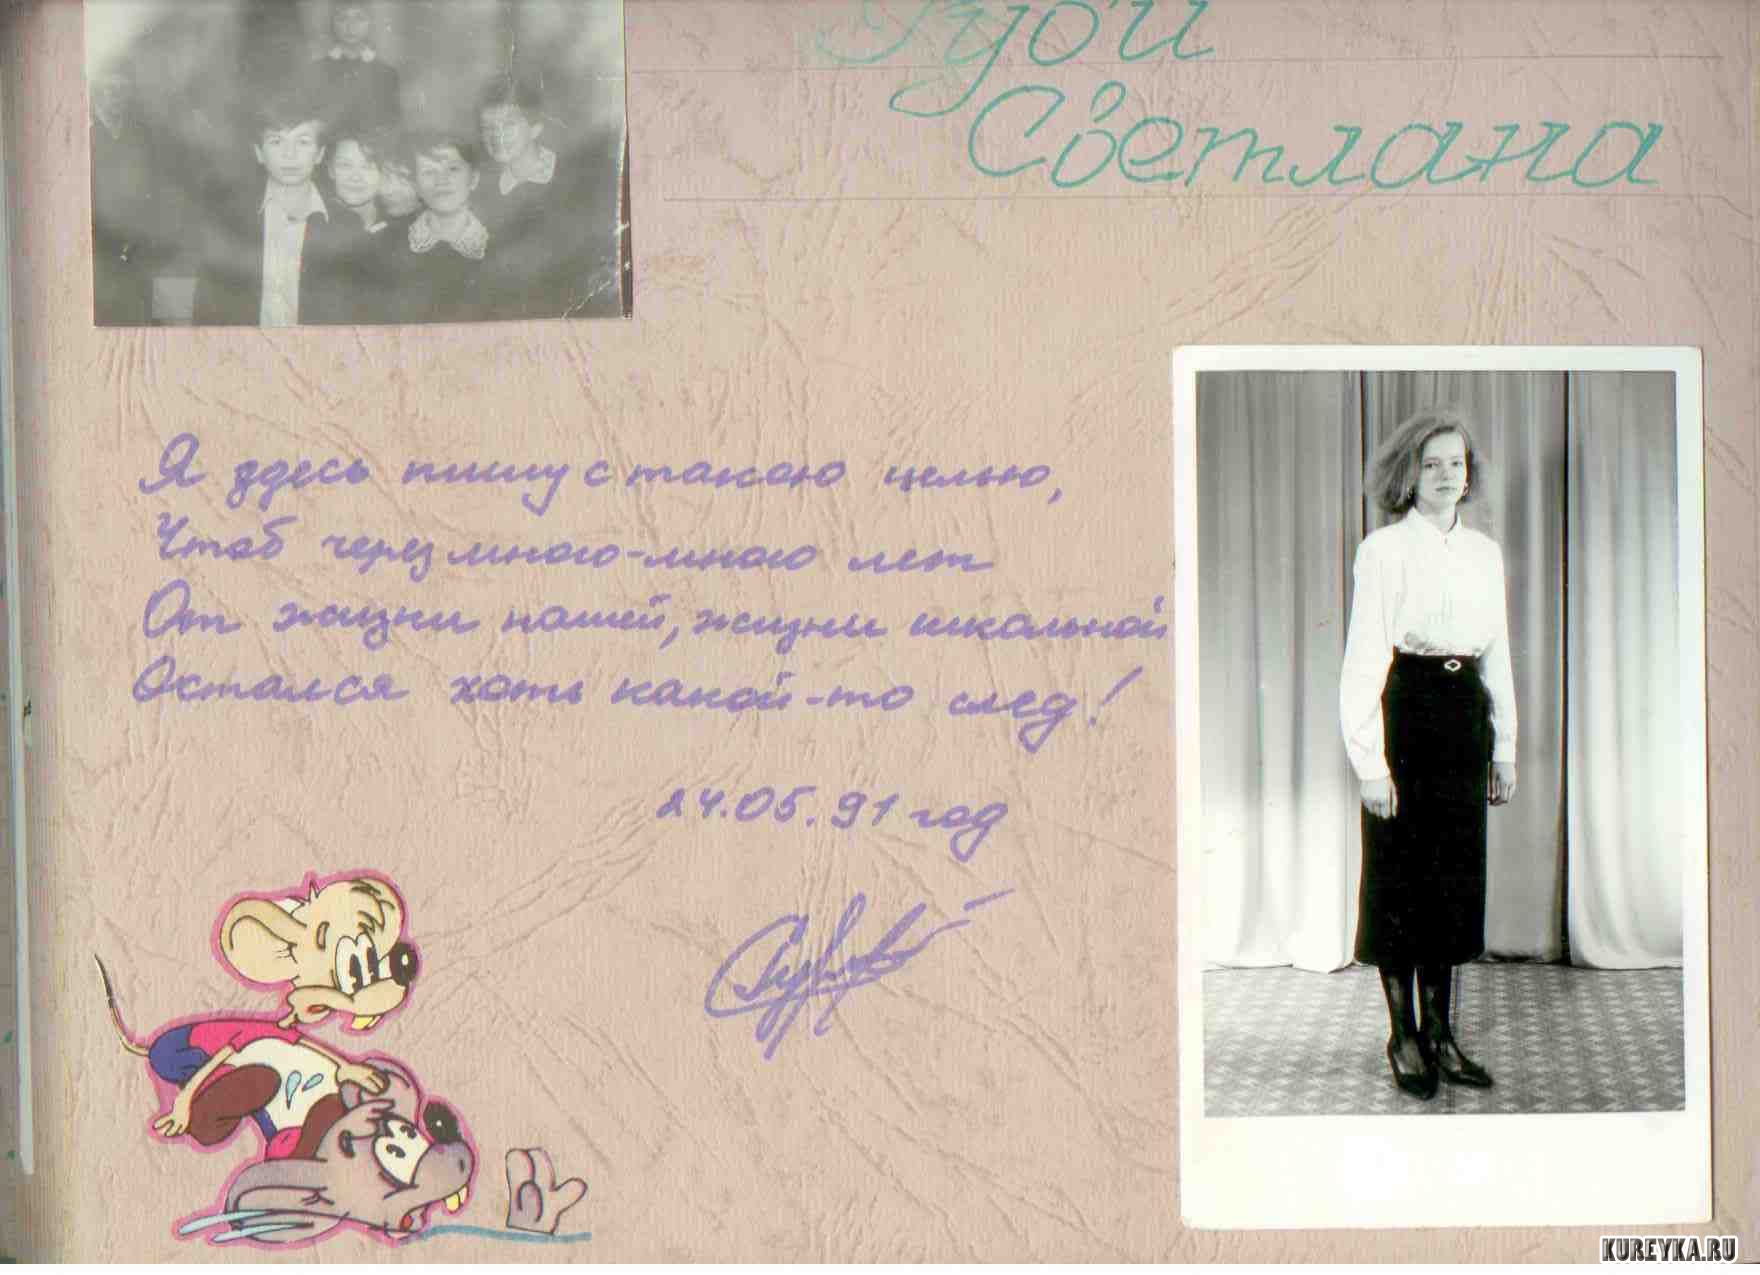 Светлана
Я здесь пишу с такою целью,
Чтоб через много-много лет
От жизни нашей, жизни школьной
Остался хоть какой-то след!
24.05.91 год
KUREYKA.RU